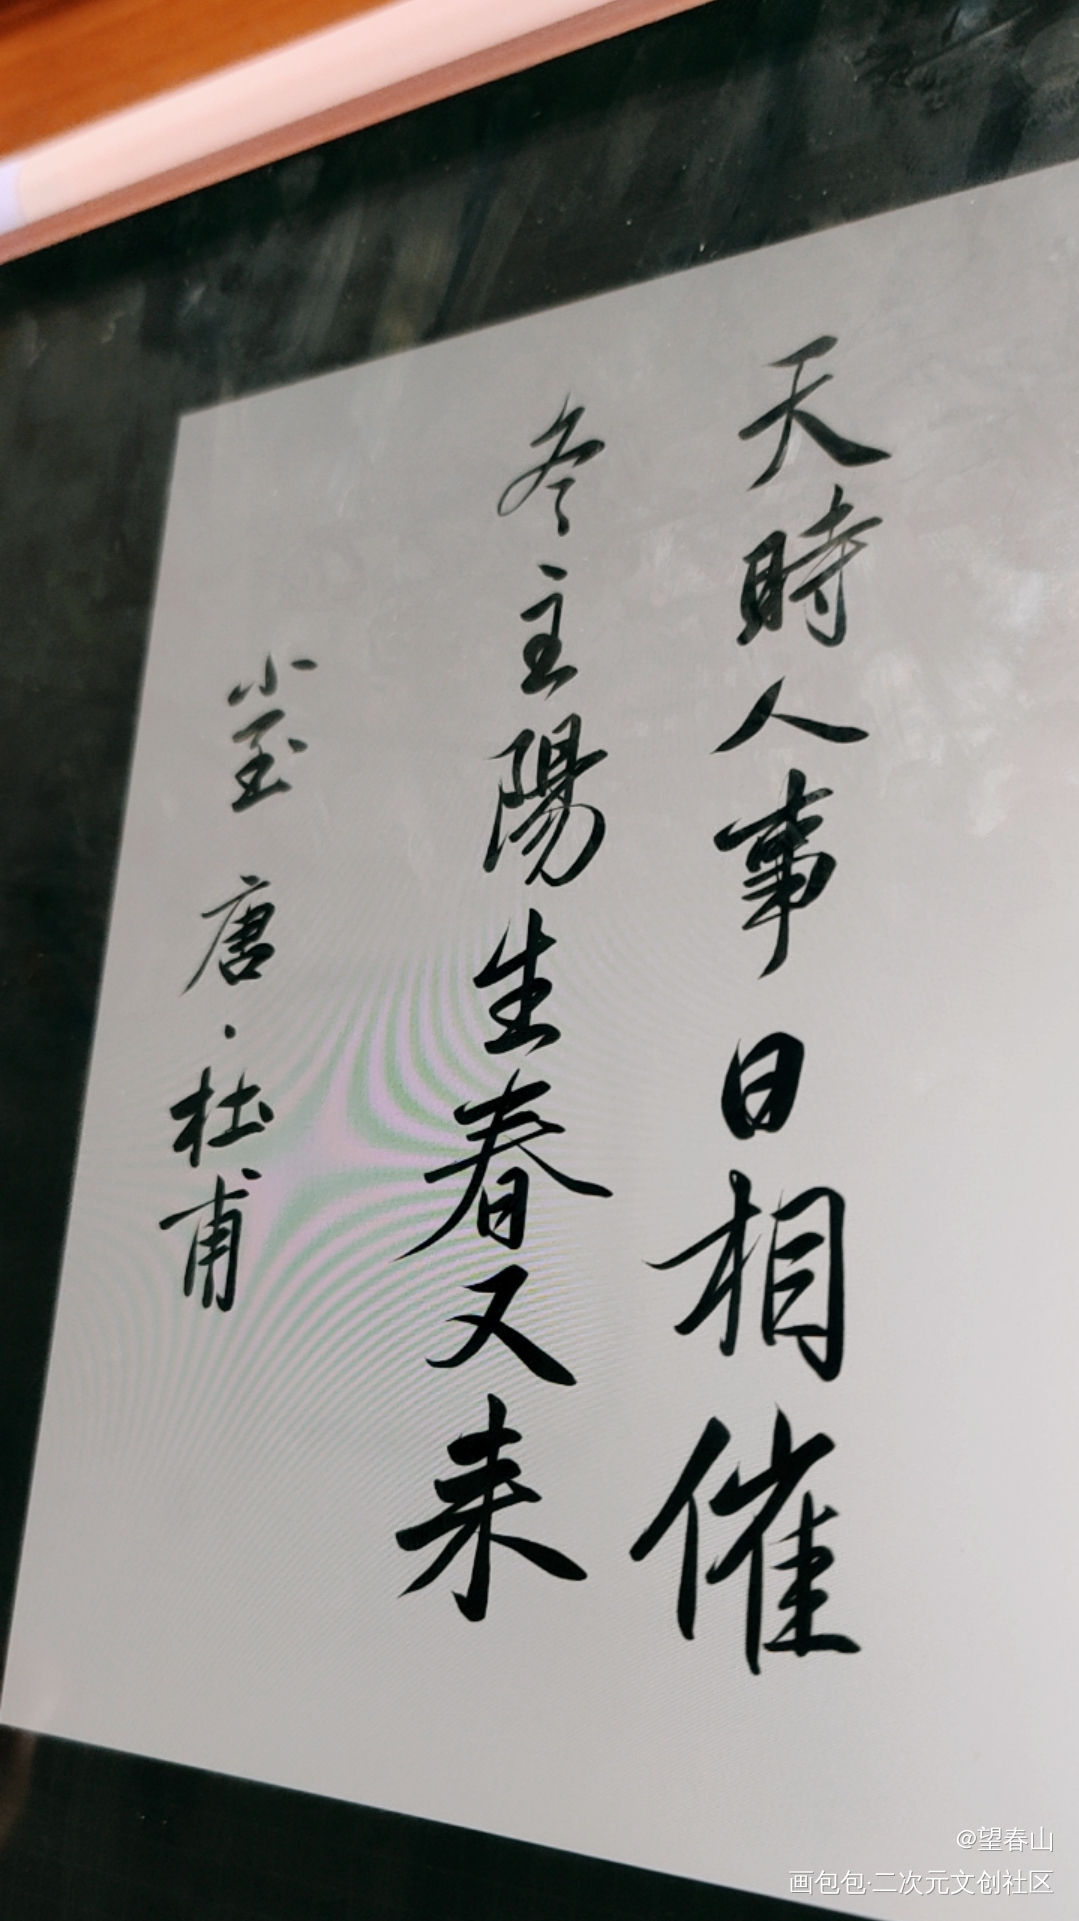 天時人事日相催
冬至陽生春又来
小至 唐·杜甫
@望春山
画包包·二次元文创社区